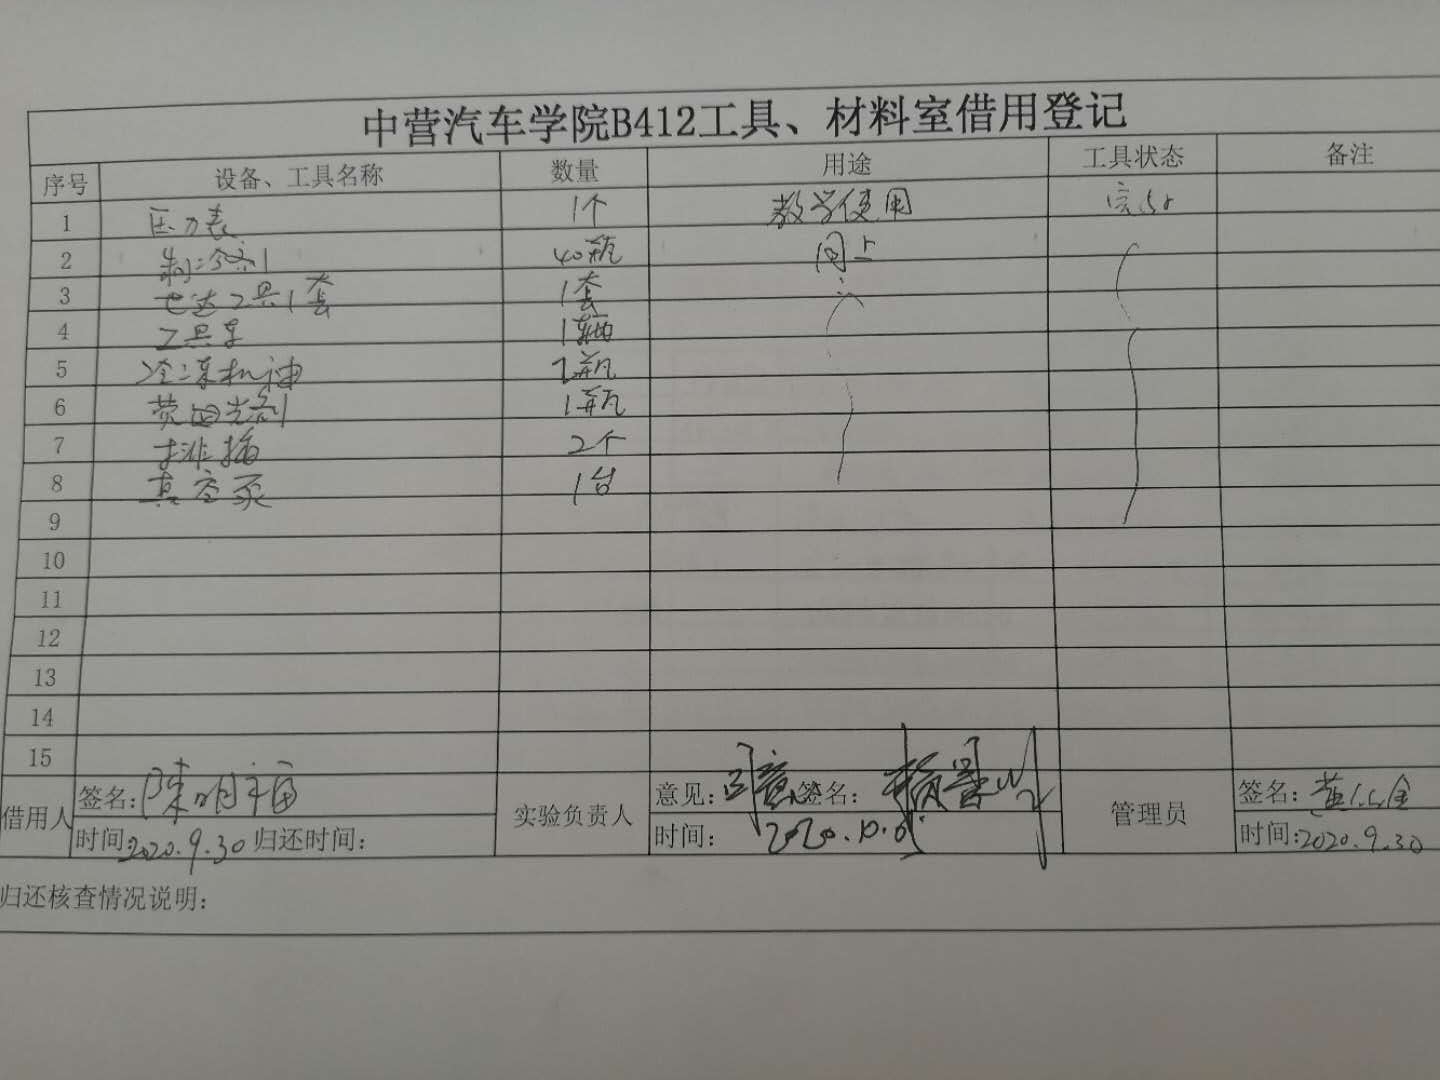 中营汽车学院B412工具、材料室借用登记
序号 设备、工具名称 数量 用途 工具状态 备注
1 压力表 1个 教学使用 完好
2 制冷剂 40瓶 同上
3 世达工具1套 1套
4 工具车 1辆
5 冷冻机油 2瓶
6 荧光剂 1瓶
7 排插 2个
8 真空泵 1台
9
10
11
12
13
14
15
借用人 签名:陈明福 实验负责人 意见:同意 签名: 管理员 签名:
时间:2020.9.30 归还时间: 时间: 2020.10. 时间:2020.9.30
归还核查情况说明: